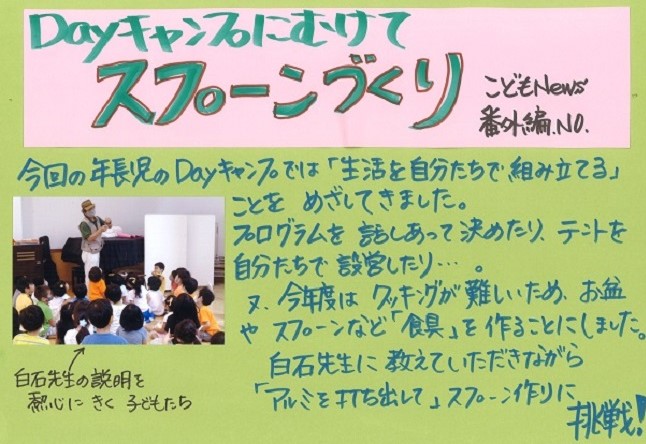 Dayキャンプにむけて
スプーンづくり
こどもNews
番外編.NO.
今回の年長児のDayキャンプでは「生活を自分たちで組み立てる」
ことを めざしてきました。
プログラムを 話しあって決めたり、テントを
自分たちで 設営したり…。
又、今年度は クッキングが難しいため、お盆
や スプーンなど「食具」を作ることにしました。
白石先生に 教えていただきながら
「アルミを打ち出して」スプーン作りに
挑戦!
白石先生の説明を
熱心に きく 子どもたち